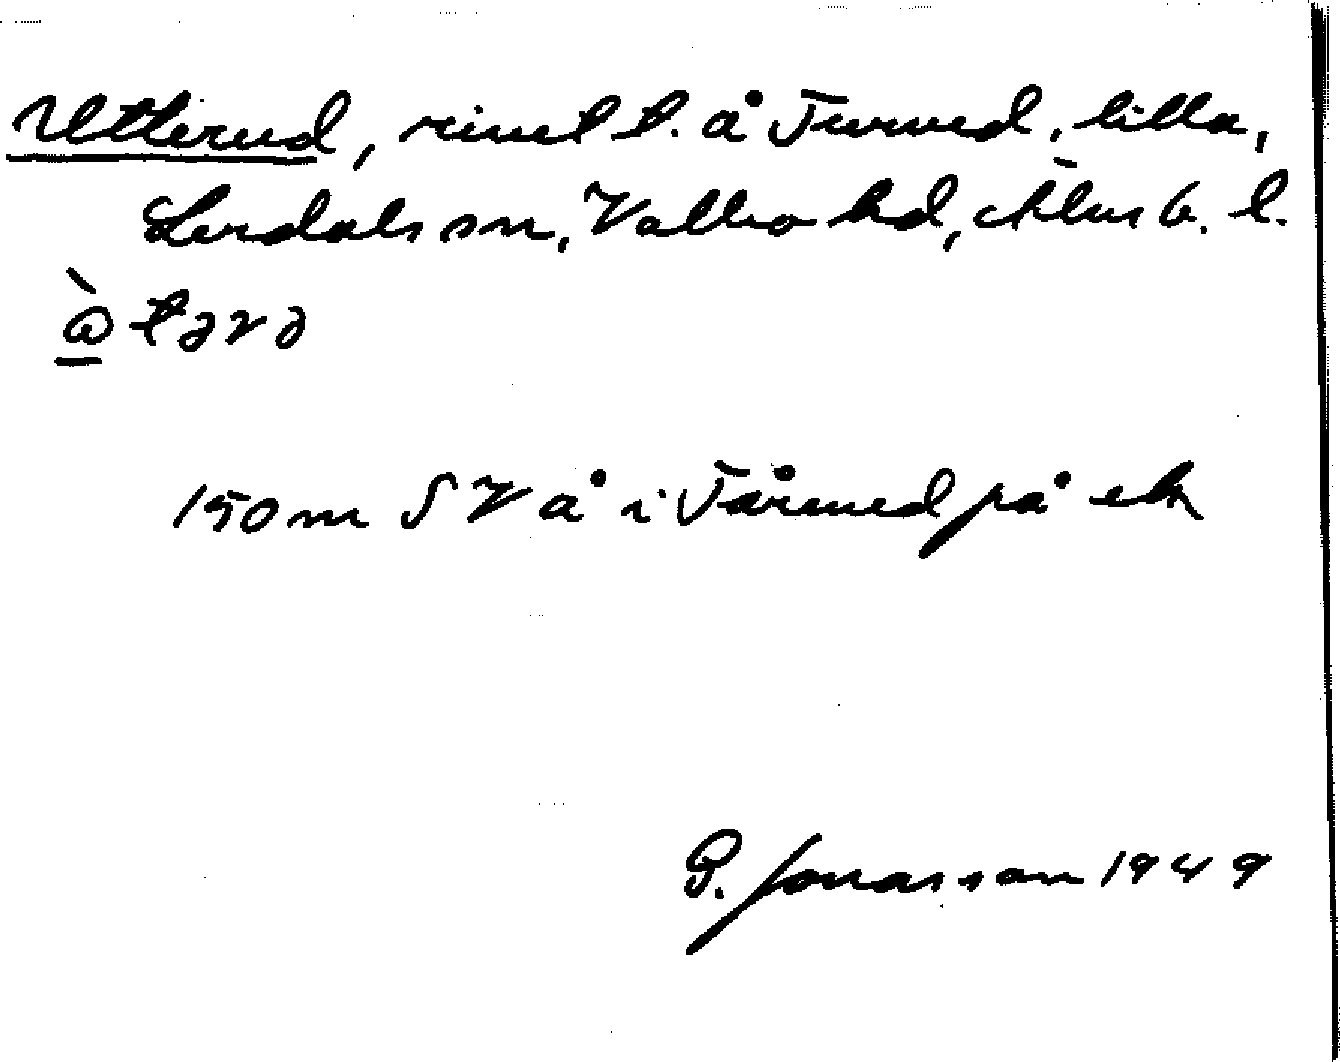 Utterud, rivet t. å Turved, lilla,
Lerdals sn, Valbo hd, Älvsb. l.
150 m SV å i Tårved på ek
P. Jonasson 1949